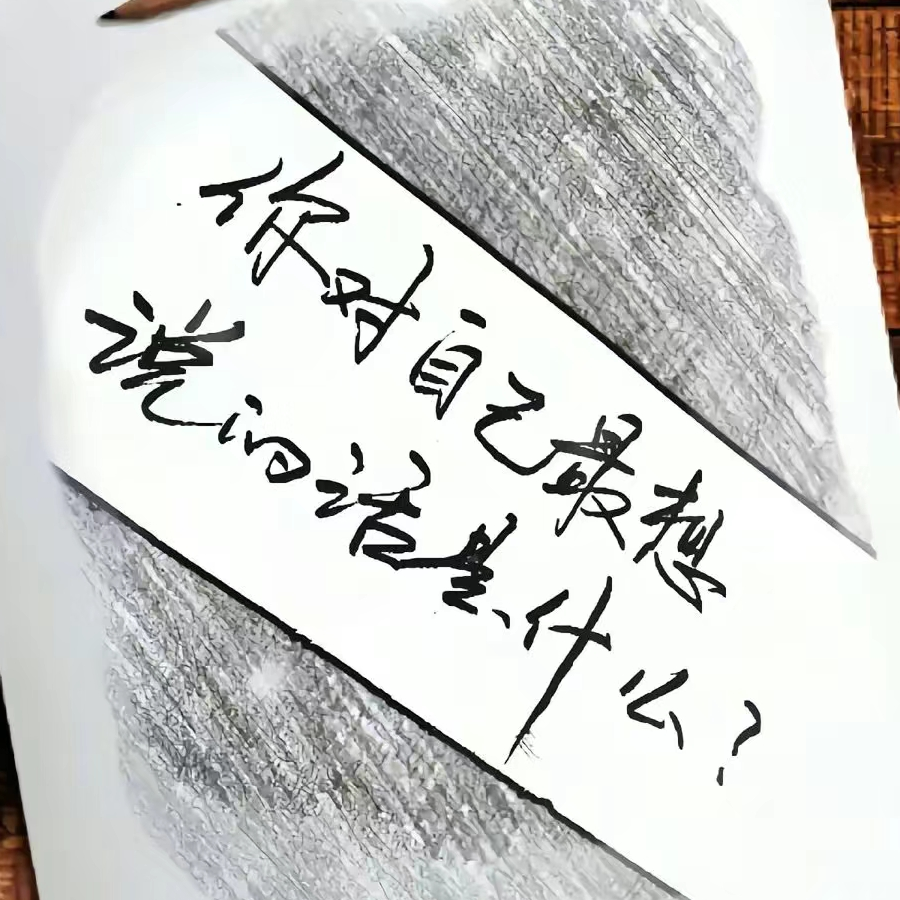 你对自己最想
说的话是什么？